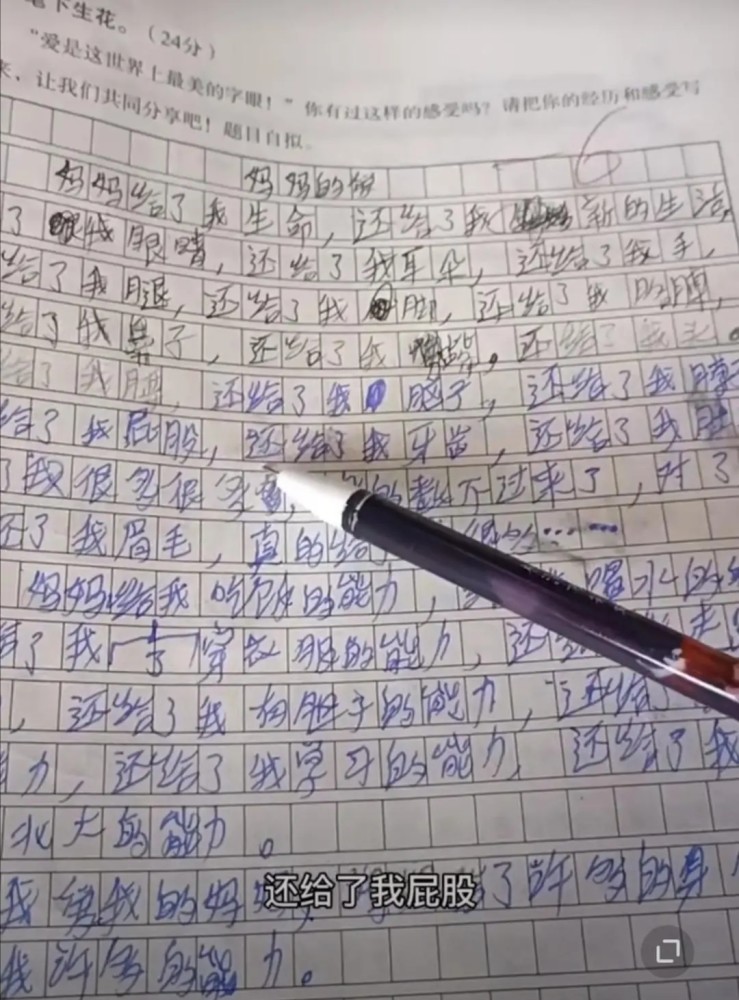 笔下生花。(24分)
“爱是这世界上最美的字眼！”你有过这样的感受吗？请把你的经历和感受写
来，让我们共同分享吧！题目自拟。
6
妈妈的
妈妈给了我生命，还给了我新的生活，
了我眼睛，还给了我耳朵，还给了我手，
给了我腿，还给了我脚，还给了我胳膊，
给了我鼻子，还给了我嘴，还给了我头。
给了我，还给了我脑子，还给了我脖子
给了我屁股，还给了我牙齿，还给了我肚
了我很多很多，的数不过来了，对了
还了我眉毛，真的给……
妈妈给我吃饭的能力，喝水的
给了我穿衣服的能力，还给走
，还给了我有胆子的能力，还给了
力，还给了我学习的能力，还给了我
北大的能力。
我的妈了许多的
我许多的能力。
还给了我屁股